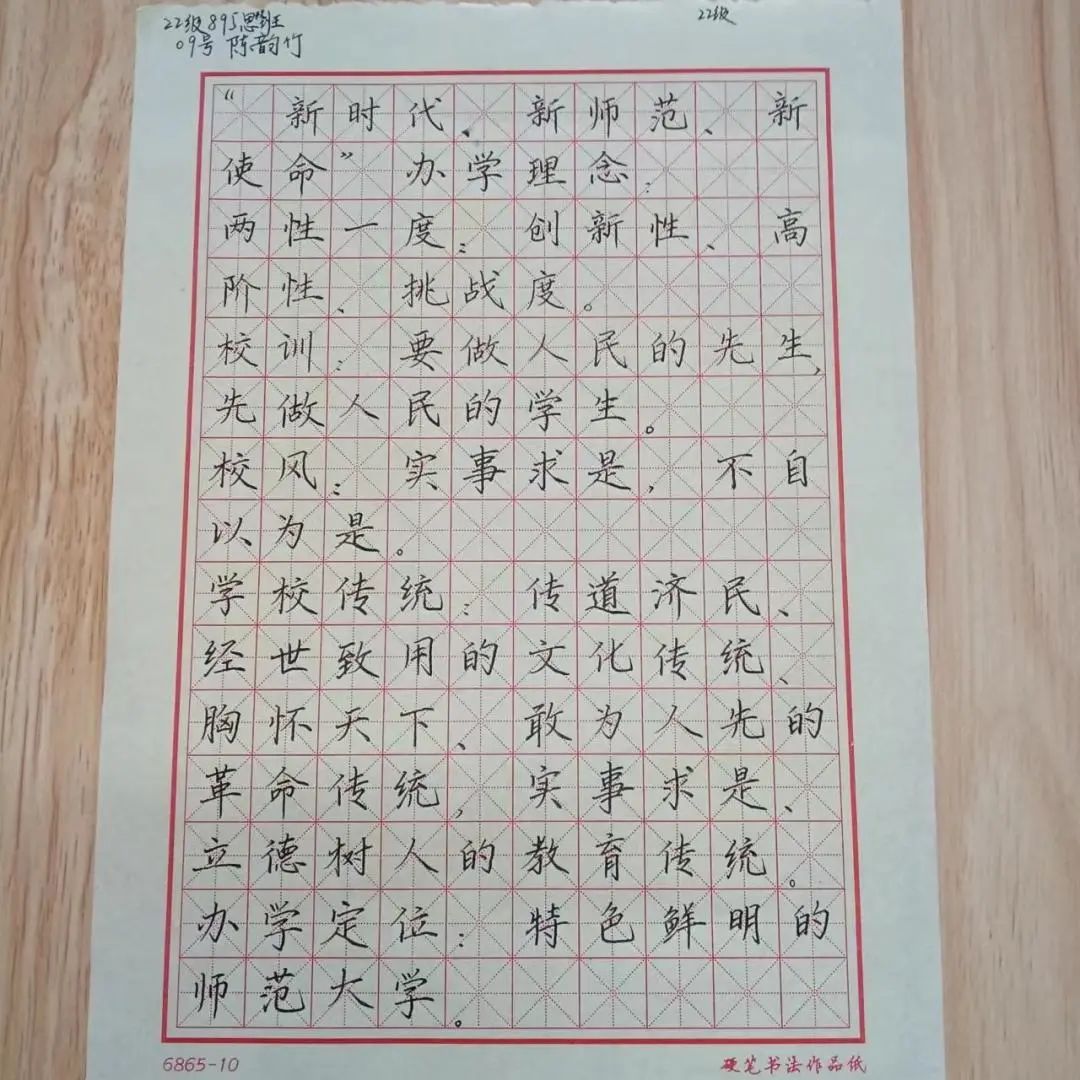 22级895思班
22级
09号 陈韵竹
“新时代、新师范、新
使命”办学理念：
两性一度：创新性、高
阶性、挑战度。
校训：要做人民的先生，
先做人民的学生。
校风：实事求是，不自
以为是。
学校传统：传道济民、
经世致用的文化传统、
胸怀天下、敢为人先的
革命传统，实事求是、
立德树人的教育传统。
办学定位：特色鲜明的
师范大学。
6865-10
硬笔书法作品纸